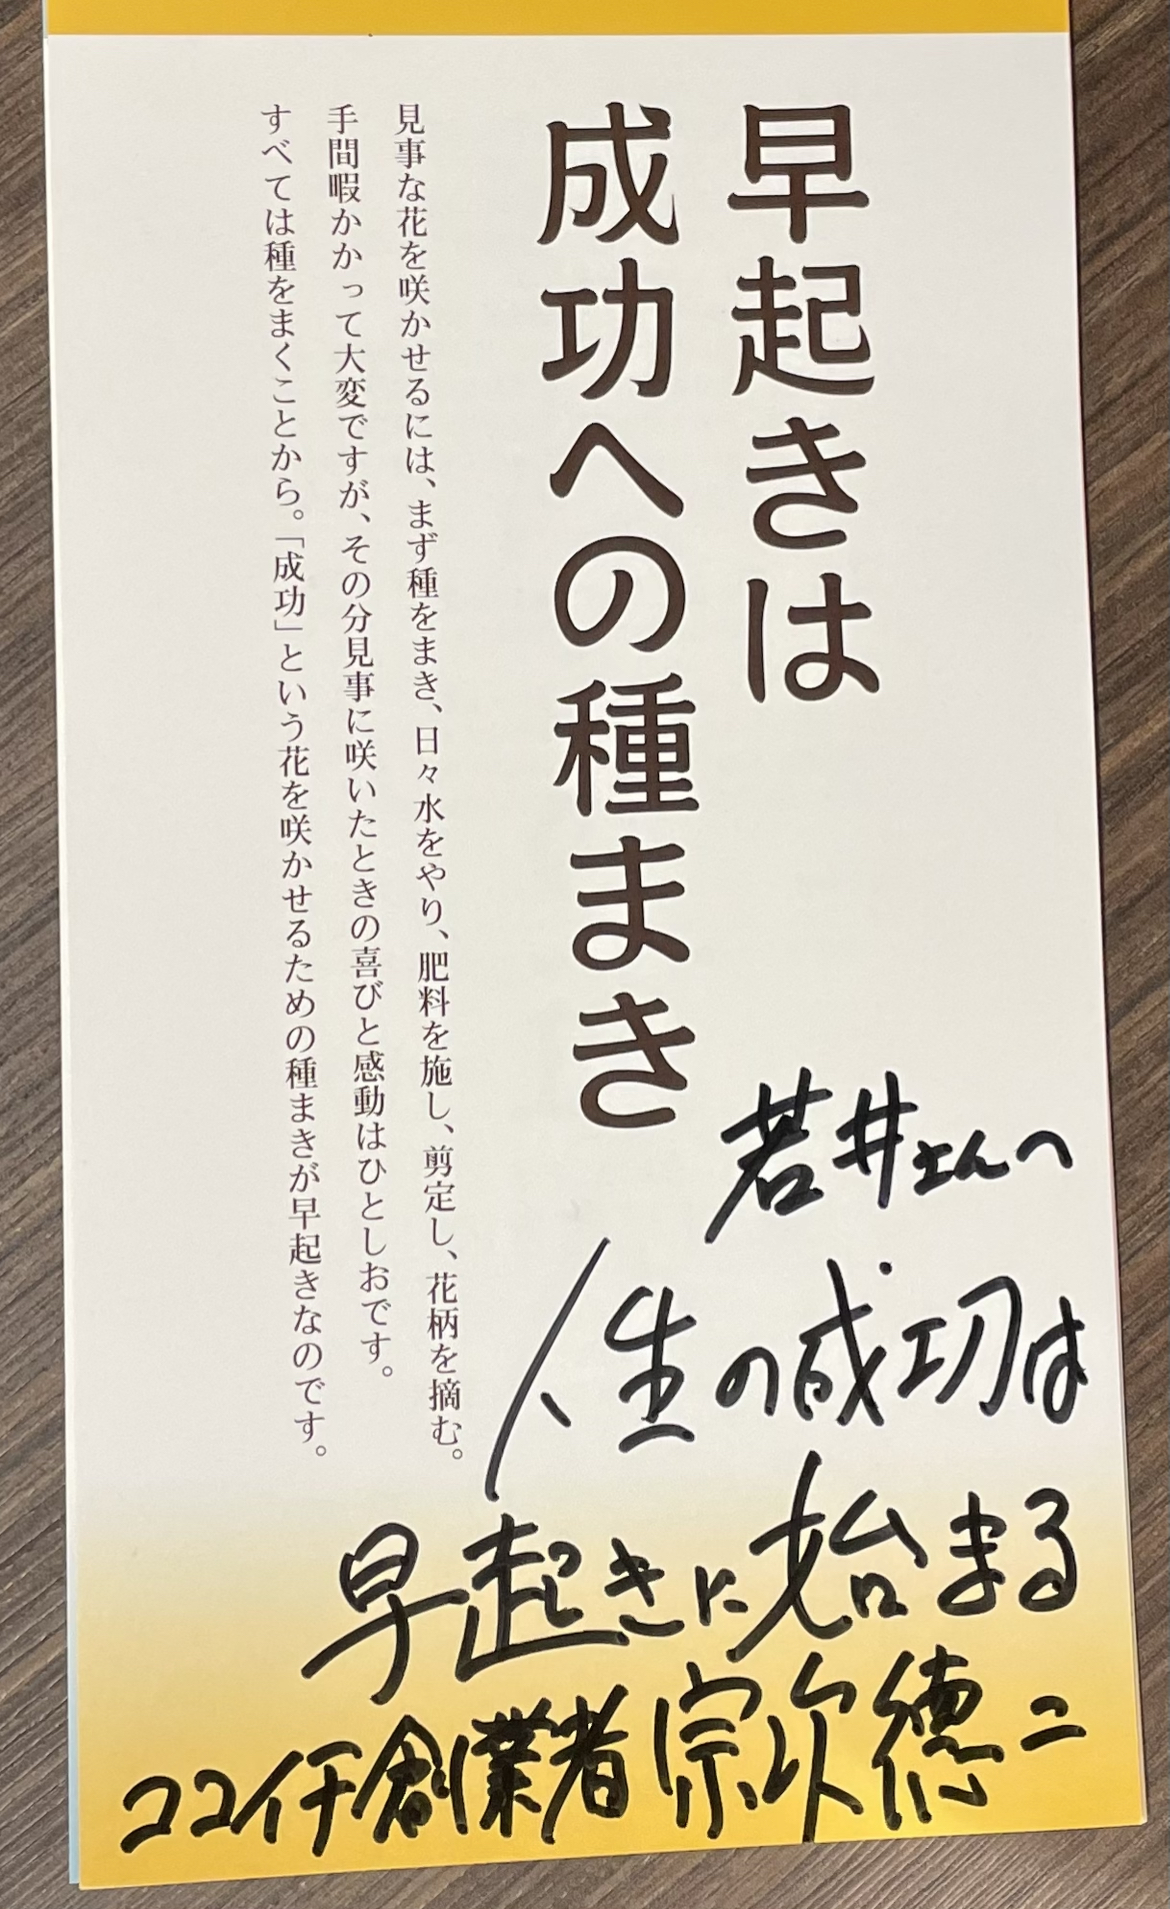 早起きは
成功への種まき
見事な花を咲かせるには、まず種をまき、日々水をやり、肥料を施し、剪定し、花柄を摘む。
手間暇かかって大変ですが、その分見事に咲いたときの喜びと感動はひとしおです。
すべては種をまくことから。「成功」という花を咲かせるための種まきが早起きなのです。
若井さんへ
人生の成功は
早起きに始まる
ココイチ創業者 宗次徳二